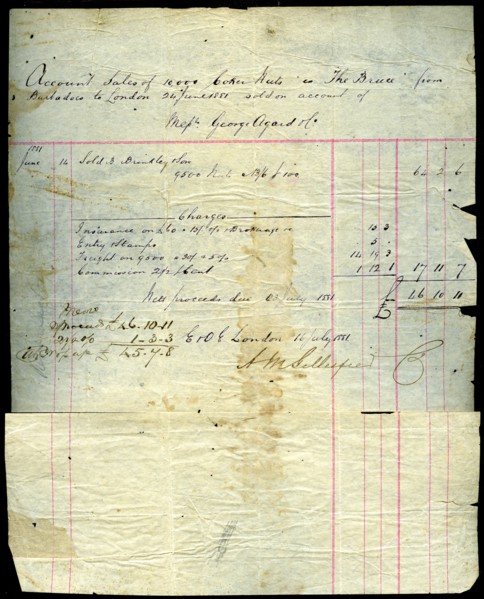 Account Sales of 10000 Coker Nuts "The Bruce" from
Barbadoes to London 24 June 1881 sold on account of
Mess. George Agard & Co
1881
June 14 Sold & Son
9500 Nuts 13/6 £ 100 64 2 6
Charges
Insurance on £60 Brokerage 10 3
Entry Stamps 5
Freight on 9500 14 19 3
Commission 2 1/2 P Cent 1 12 1 17 11 7
Nett proceeds due July 1881 £ 46 10 11
£46-10-11
1-3-3
£ 45-7-8
E & O E London 16 July 1881
A M Gillespie & Co